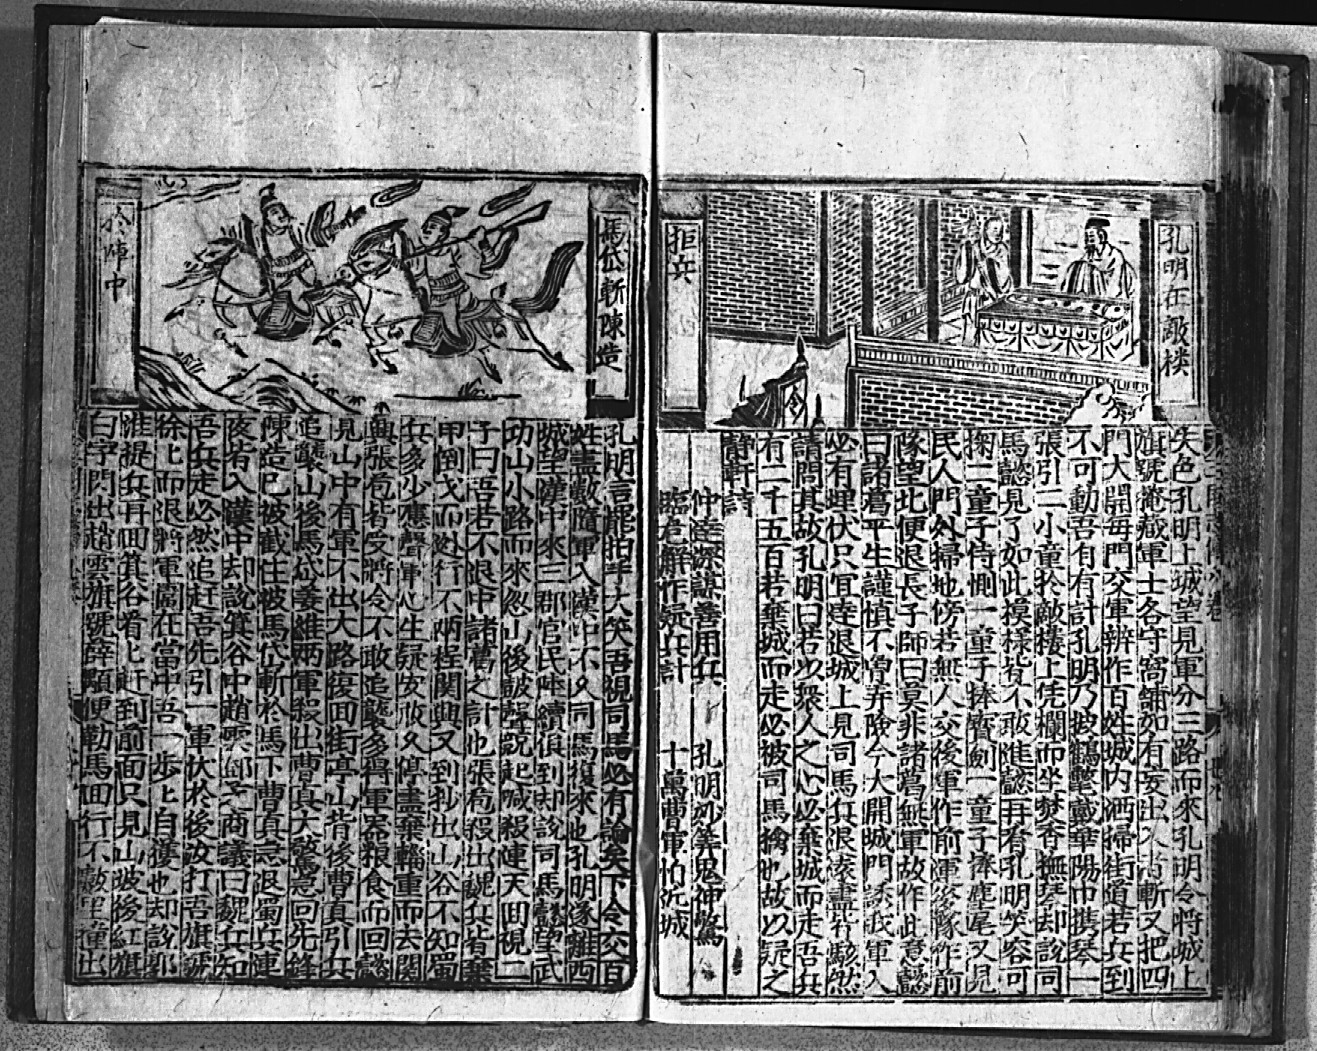 孔明在敵樓
拒兵
失色孔明上城望見軍分三路而來孔明令將城上
旗號遮藏軍士各守窩鋪如有妄出入者斬又把四
門大開每門交軍辨作百姓城内洒掃街道若兵到
不可動吾自有計孔明乃披鶴氅戴華陽巾携琴一
張引二小童於敵樓上凭欄而坐焚香撫琴却說司
馬懿見了如此模樣皆不敢進懿再看孔明笑容可
掬二童子侍側一童子捧寳劍一童子麈尾又見
民人門外掃地傍若無人交後軍作前軍後隊作前
隊望北便退長子師曰莫非諸葛無軍故作此意懿
曰諸葛平生謹慎不曾弄險今大開城門誘我軍入
必有埋伏只宜速退城上見司馬兵退盡皆駭然
請問其故孔明曰若以衆人之心必棄城而走吾兵
有二千五百若棄城而走必被司馬擒也故以疑之
靜軒詩
仲達深謀善用兵 孔明妙筭鬼神驚
臨危解作疑兵計 十萬曹軍怕沉城
馬岱斬陳造
於陣中
孔明言罷拍手大笑吾視司馬必有論矣下令交百
姓盡數隨軍入漢中不久司馬復來也孔明遂離西
城望漢中來三郡官民陸續俱到却說司馬懿望武
功山小路而來忽山後皷聲競起喊殺連天回視二
子曰吾若不退中諸葛之計也張苞殺出魏兵皆棄
甲倒戈而走行不兩程関興又到抄出山谷不知蜀
兵多少應聲軍心生疑安敢久停盡棄輜重而去関
興張苞皆受將令不敢追襲多得軍器粮食而回懿
見山中有軍不出大路復回街亭山背後曹真引兵
追襲山後馬岱姜維兩軍殺出曹真大驚急回先鋒
陳造已被截住被馬岱斬於馬下曹真急退蜀兵連
夜皆入漢中却說箕谷中趙雲鄧芝商議曰魏兵知
吾兵走必然追赶吾先引一軍伏於後汝打吾旗號
徐上而退將軍屬在當中吾一步上自獲也却說郭
淮提兵再回箕谷看上赶到前面只見山坡後紅旗
白字閃出趙雲旗號薛顒便勒馬回行不數里撞出